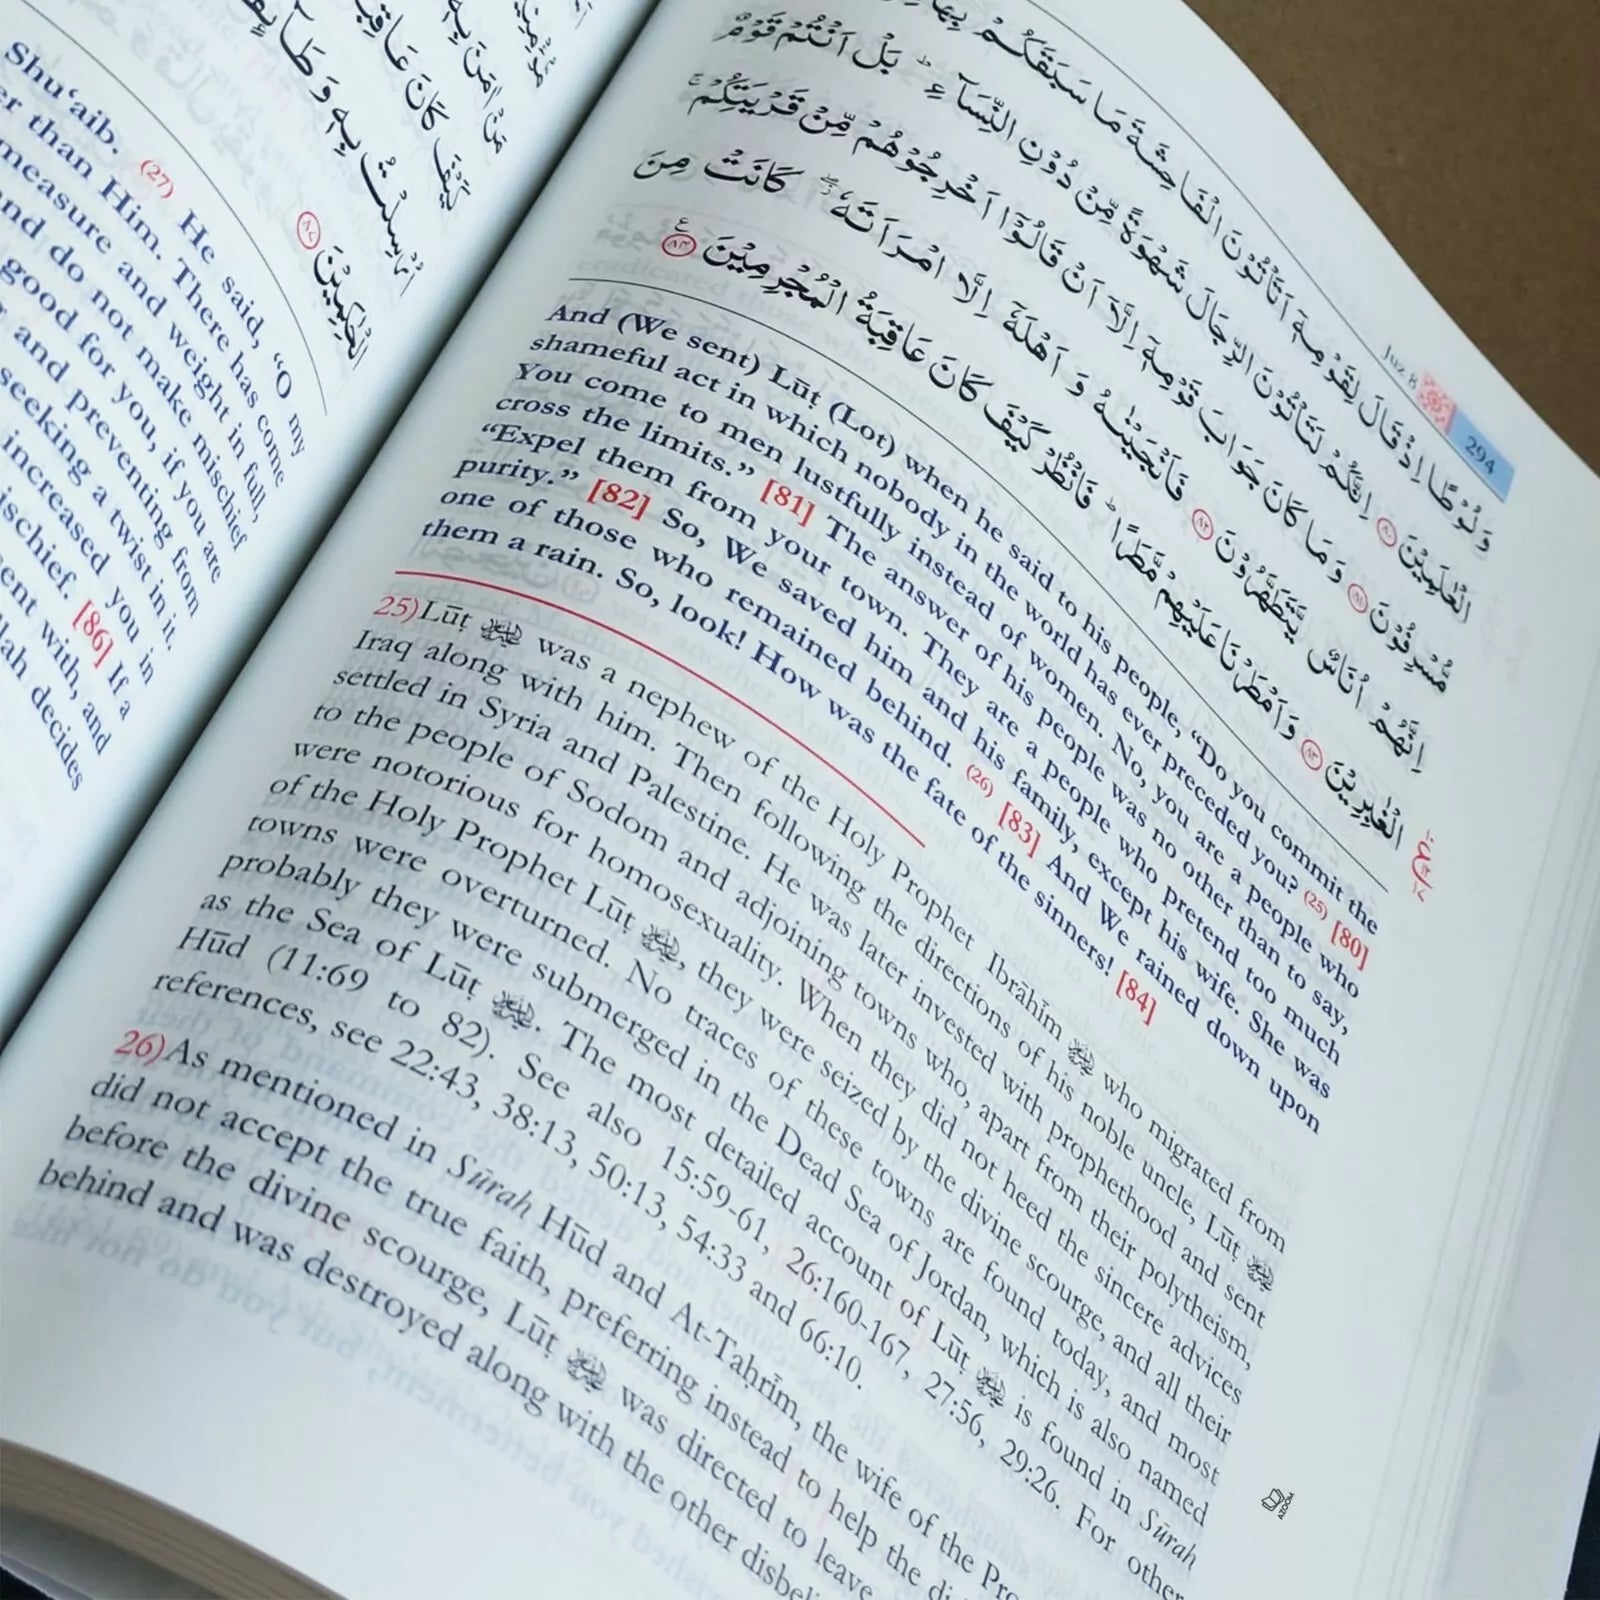 Shu‘aib.
er than Him. There has come
measure and weight in full,
nd do not make mischief
good for you, if you are
and preventing from
seeking a twist in it.
increased you in
ischief. [86] If a
ent with, and
lah decides
(27) He said, “O my
الْحٰكِمِيْنَ ﴿۸۷﴾
اُرْسِلْتُ بِهٖ وَطَآىِٕ
كَيْفَ كَانَ عَاقِ
مَنْ اٰمَنَ بِهٖ
Juz 8
294
وَلُوْطًا اِذْ قَالَ لِقَوْمِهٖۤ اَتَاْتُوْنَ الْفَاحِشَةَ مَا سَبَقَكُمْ بِهَا
الْعٰلَمِيْنَ ﴿۸۰﴾ اِنَّكُمْ لَتَاْتُوْنَ الرِّجَالَ شَهْوَةً مِّنْ دُوْنِ النِّسَآءِ ؕ بَلْ اَنْتُمْ قَوْمٌ
مُّسْرِفُوْنَ ﴿۸۱﴾ وَمَا كَانَ جَوَابَ قَوْمِهٖۤ اِلَّاۤ اَنْ قَالُوْۤا اَخْرِجُوْهُمْ مِّنْ قَرْيَتِكُمْ ۚ
اِنَّهُمْ اُنَاسٌ يَّتَطَهَّرُوْنَ ﴿۸۲﴾ فَاَنْجَيْنٰهُ وَ اَهْلَهٗۤ اِلَّا امْرَاَتَهٗ ۖ كَانَتْ مِنَ
الْغٰبِرِيْنَ ﴿۸۳﴾ وَاَمْطَرْنَا عَلَيْهِمْ مَّطَرًا ؕ فَانْظُرْ كَيْفَ كَانَ عَاقِبَةُ الْمُجْرِمِيْنَ ﴿۸۴﴾
And (We sent) Lūṭ (Lot) when he said to his people, “Do you commit the
shameful act in which nobody in the world has ever preceded you? (25) [80]
You come to men lustfully instead of women. No, you are a people who
cross the limits.” [81] The answer of his people was no other than to say,
“Expel them from your town. They are a people who pretend too much
purity.” [82] So, We saved him and his family, except his wife. She was
one of those who remained behind. (26) [83] And We rained down upon
them a rain. So, look! How was the fate of the sinners! [84]
25) Lūṭ was a nephew of the Holy Prophet Ibrāhīm who migrated from
Iraq along with him. Then following the directions of his noble uncle, Lūṭ
settled in Syria and Palestine. He was later invested with prophethood and sent
to the people of Sodom and adjoining towns who, apart from their polytheism,
were notorious for homosexuality. When they did not heed the sincere advices
of the Holy Prophet Lūṭ , they were seized by the divine scourge, and all their
towns were overturned. No traces of these towns are found today, and most
probably they were submerged in the Dead Sea of Jordan, which is also named
as the Sea of Lūṭ . The most detailed account of Lūṭ is found in Sūrah
Hūd (11:69 to 82). See also 15:59-61, 26:160-167, 27:56, 29:26. For other
references, see 22:43, 38:13, 50:13, 54:33 and 66:10.
26) As mentioned in Sūrah Hūd and At-Taḥrīm, the wife of the Pro
did not accept the true faith, preferring instead to help the di
before the divine scourge, Lūṭ was directed to leave
behind and was destroyed along with the other disbeli
AZOOM